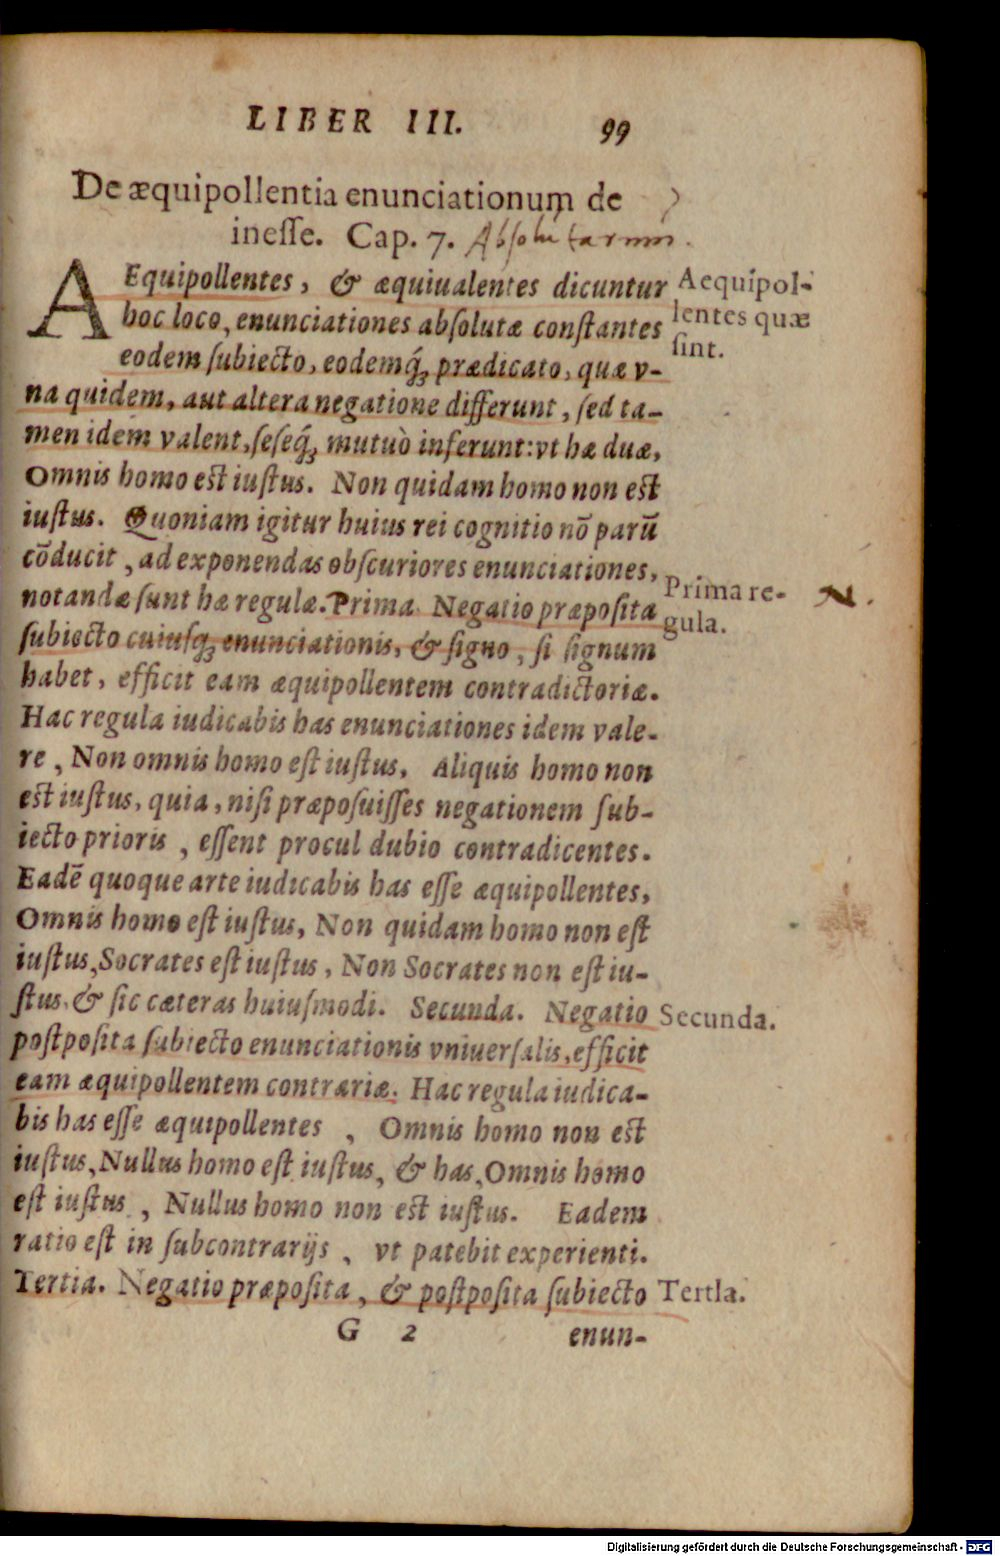 LIBER III. 99
De æquipollentia enunciationum de
inesse. Cap. 7. Absolutarum.
AEquipollentes, & æquiualentes dicuntur
hoc loco, enunciationes absolutæ constantes
eodem subiecto, eodemq́; prædicato, quæ v-
na quidem, aut altera negatione differunt, sed ta-
men idem valent, seseq́; mutuò inferunt: vt hæ duæ,
Omnis homo est iustus. Non quidam homo non est
iustus. Quoniam igitur huius rei cognitio nō parū
cōducit, ad exponendas obscuriores enunciationes,
notandæ sunt hæ regulæ. Prima. Negatio præposita
subiecto cuiusq; enunciationis, & signo, si signum
habet, efficit eam æquipollentem contradictoriæ.
Hac regula iudicabis has enunciationes idem vale-
re, Non omnis homo est iustus, Aliquis homo non
est iustus, quia, nisi præposuisses negationem sub-
iecto prioris, essent procul dubio contradicentes.
Eadē quoque arte iudicabis has esse æquipollentes,
Omnis homo est iustus, Non quidam homo non est
iustus, Socrates est iustus, Non Socrates non est iu-
stus, & sic cæteras huiusmodi. Secunda. Negatio
postposita subiecto enunciationis vniuersalis, efficit
eam æquipollentem contrariæ. Hac regula iudica-
bis has esse æquipollentes, Omnis homo non est
iustus, Nullus homo est iustus, & has, Omnis homo
est iustus, Nullus homo non est iustus. Eadem
ratio est in subcontrarijs, vt patebit experienti.
Tertia. Negatio præposita, & postposita subiecto
G 2 enun-
Aequipol-
lentes quæ
sint.
Prima re-
gula.
N.
Secunda.
Tertia.
Digitalisierung gefördert durch die Deutsche Forschungsgemeinschaft - DFG